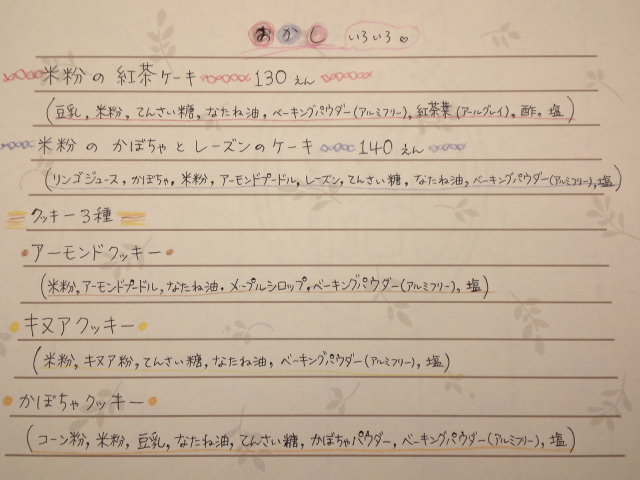 おかし いろいろ♡
米粉の紅茶ケーキ 130えん
(豆乳, 米粉, てんさい糖, なたね油, ベーキングパウダー(アルミフリー), 紅茶葉(アールグレイ), 酢, 塩)
米粉のかぼちゃとレーズンのケーキ 140えん
(リンゴジュース, かぼちゃ, 米粉, アーモンドプードル, レーズン, てんさい糖, なたね油, ベーキングパウダー(アルミフリー), 塩)
クッキー3種
・アーモンドクッキー・
(米粉, アーモンドプードル, なたね油, メープルシロップ, ベーキングパウダー(アルミフリー), 塩)
・キヌアクッキー・
(米粉, キヌア粉, てんさい糖, なたね油, ベーキングパウダー(アルミフリー), 塩)
・かぼちゃクッキー・
(コーン粉, 米粉, 豆乳, なたね油, てんさい糖, かぼちゃパウダー, ベーキングパウダー(アルミフリー), 塩)